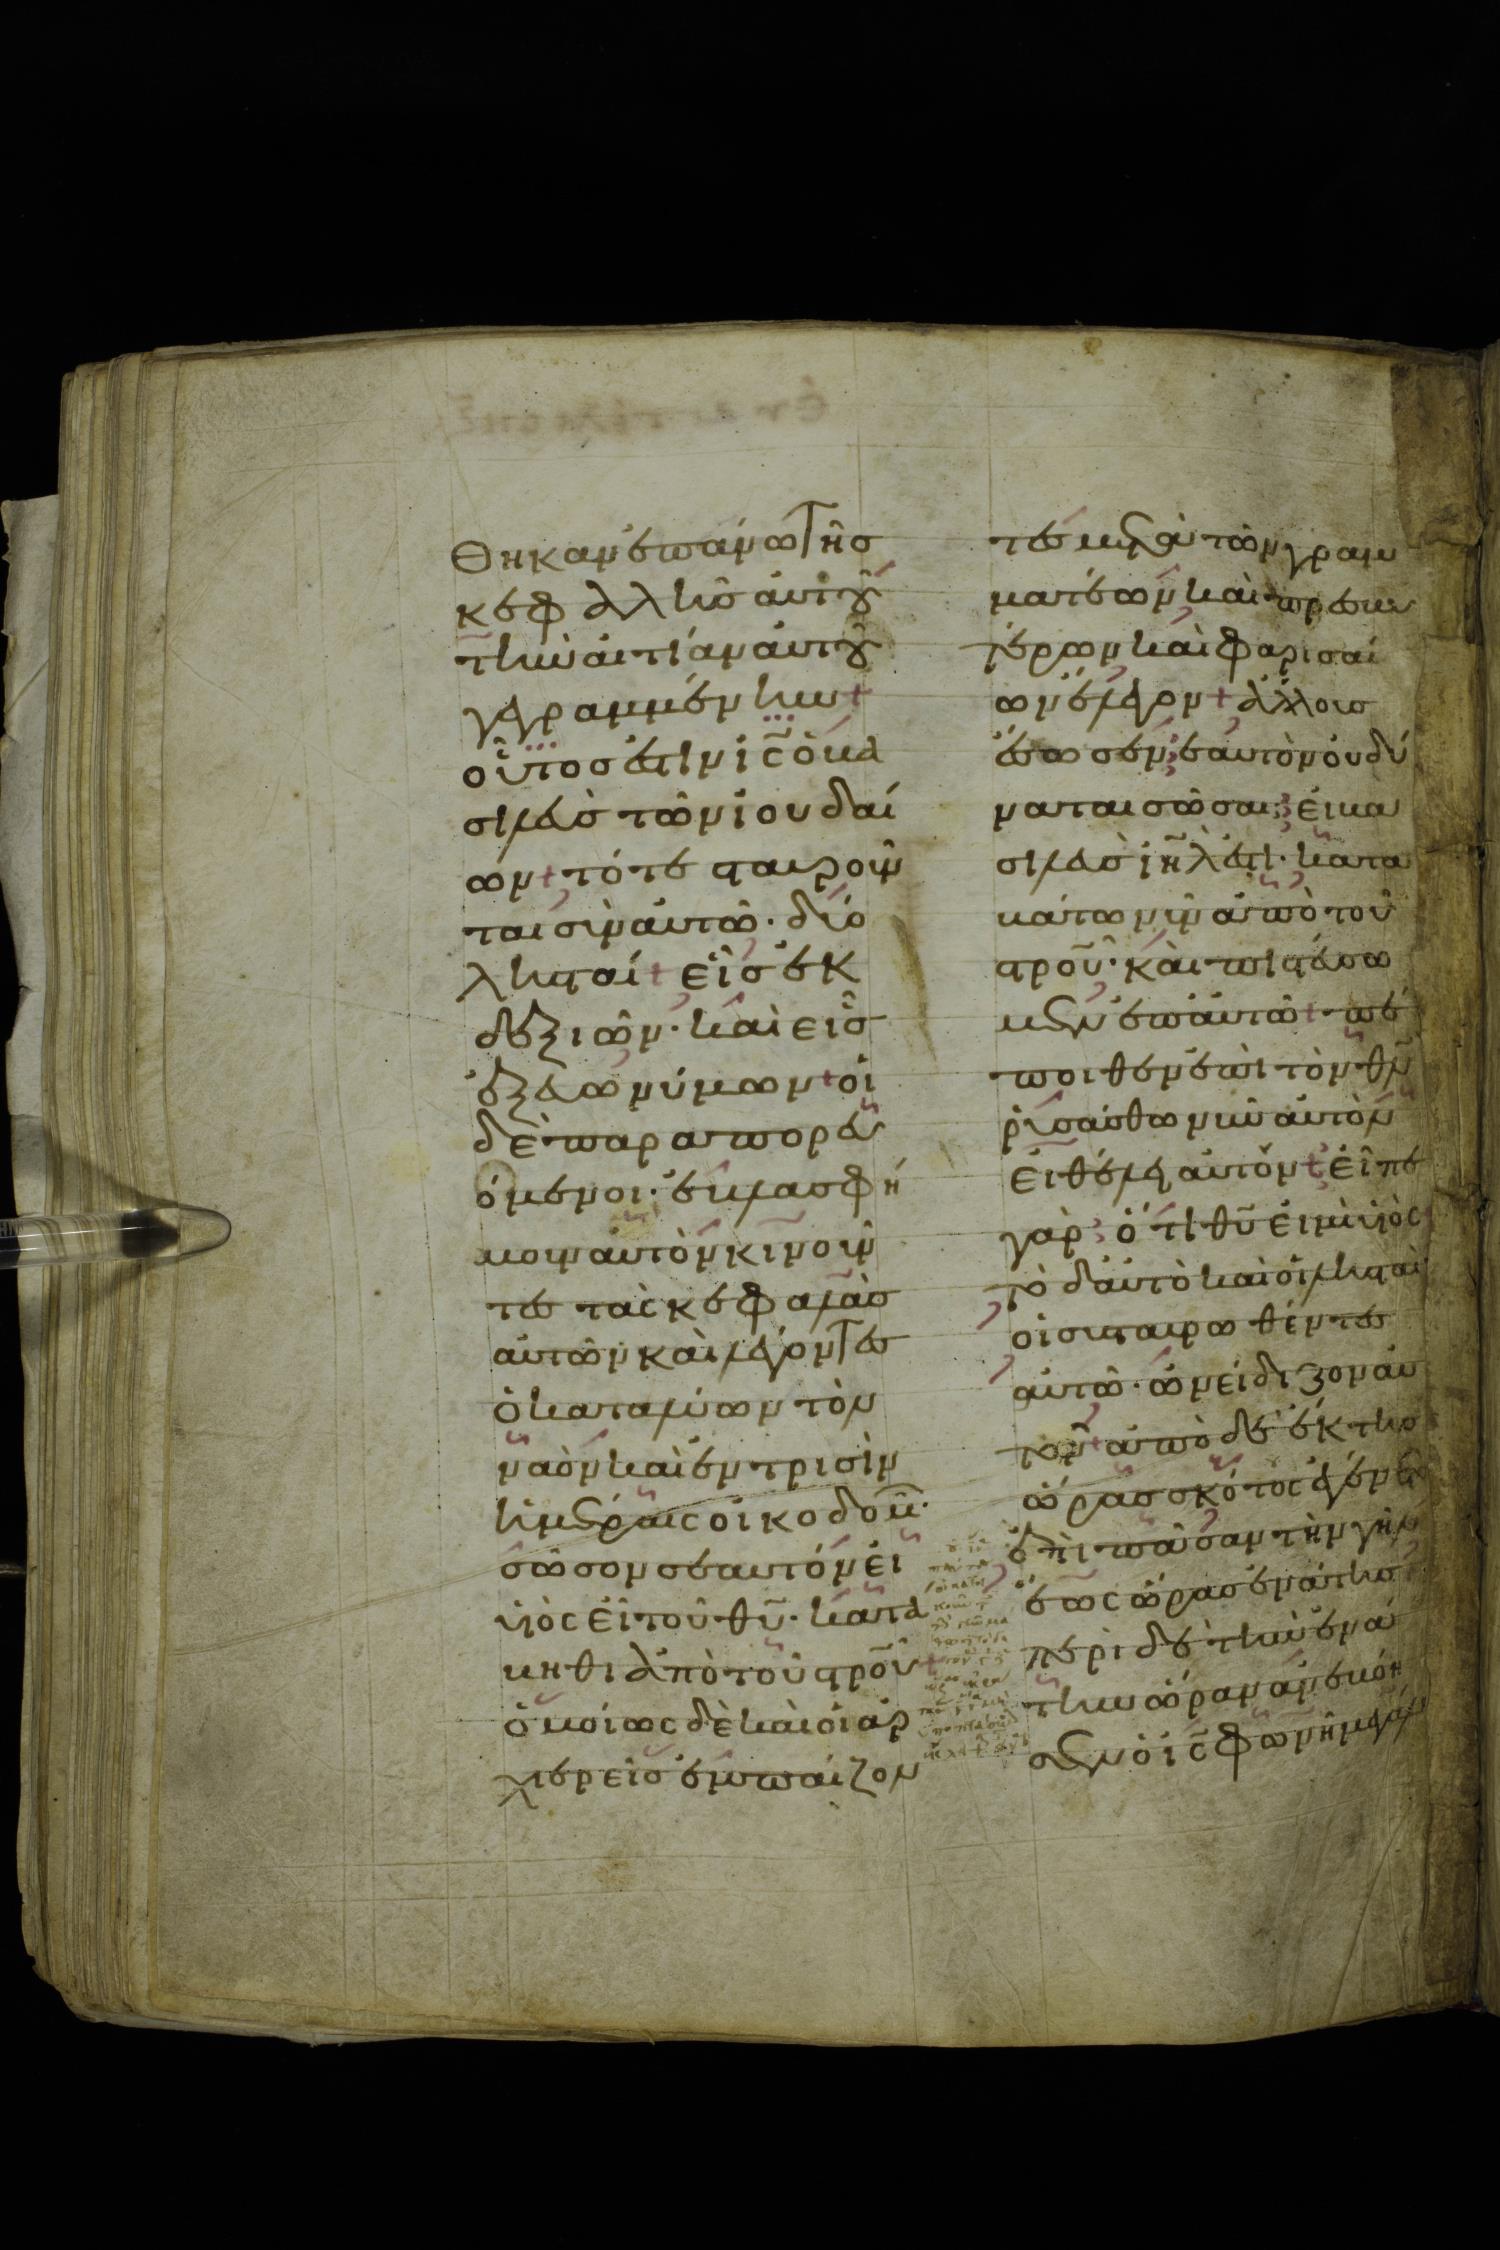 θηκαν επάνω της
κεφαλῆς αὐτοῦ
τὴν αἰτίαν αὐτοῦ
γεγραμμένην +
οὗτος ἐστὶν ι̅ς̅ ὁ βα
σιλεὺς τῶν ἰουδαί
ων + τότε σταυροῦν
ται σὺν αὐτῶ · δύο
λησταί + εἷς ἐκ
δεξιῶν · καὶ εἷς
ἐξ εὐωνύμων + οἱ
δὲ παραπορευ
όμενοι · ἐβλασφή
μουν αὐτὸν κινοῦν
τες τὰς κεφαλὰς
αὐτῶν καὶ λέγοντες
ὁ καταλύων τὸν
ναὸν καὶ ἐν τρισὶν
ἡμέραις οἰκοδομ ·
σῶσον σεαυτόν εἰ
υἱὸς εἶ τοῦ θ̅υ̅ · κατα
βηθι ἀπὸ τοῦ σ̅ρ̅ου +
ὁμοίως δὲ καὶ οἱ ἀρ
χιερεῖς ἐμπαίζον
τες μετὰ τῶν γραμ
ματέων καὶ πρεσβυ
τέρων καὶ φαρισαί
ων ἔλεγον + ἄλλους
ἔσωσεν ἑαυτὸν οὐ δύ
ναται σῶσαι εἰ βα
σιλεὺς ι̅η̅λ̅ ἐστι · κατα
βάτω νῦν ἀπὸ τοῦ
σ̅ρ̅ου · καὶ πιστεύσω
μεν ἐπ αὐτῶ + πέ
ποιθεν ἐπὶ τὸν θ̅ν̅
ῥυσάσθω νῦν αὐτὸν
εἰ θέλει αὐτόν + εἶπε
γὰρ ὅτι θ̅υ̅ εἰμὶ υἱός
τὸ δ αὐτὸ καὶ οἱ λησταὶ
οἱ συσταυρωθέντες
αὐτῶ · ὠνείδιζον αὐ
τον + ἀπὸ δὲ ἕκτης
ὥρας σκότος ἐγένετο
ἐπὶ πᾶσαν τὴν γῆν
ἕως ὥρας ἐνάτης
περὶ δὲ τὴν ἐνά
την ὥραν ἀνεβόη
σεν ὁ ι̅ς̅ φωνῆ μεγάλη